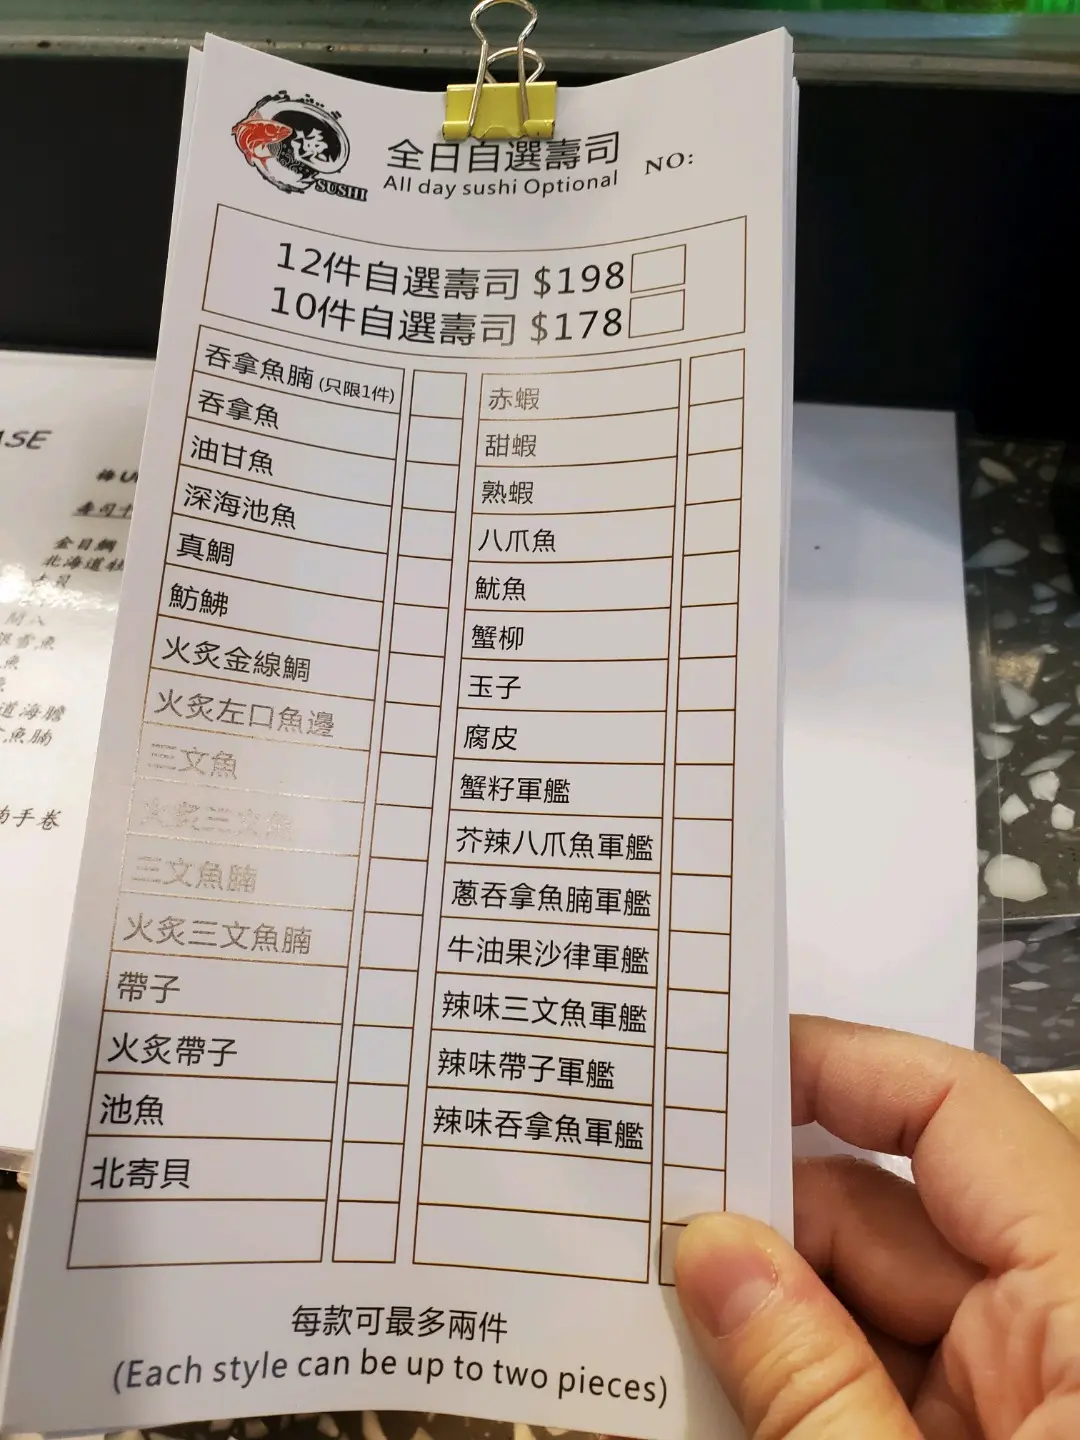 逸
SUSHI
全日自選壽司
All day sushi Optional
NO:
12件自選壽司 $198
10件自選壽司 $178
吞拿魚腩 (只限1件)
吞拿魚
油甘魚
深海池魚
真鯛
魴鮄
火炙金線鯛
火炙左口魚邊
三文魚
火炙三文魚
三文魚腩
火炙三文魚腩
帶子
火炙帶子
池魚
北寄貝
赤蝦
甜蝦
熟蝦
八爪魚
魷魚
蟹柳
玉子
腐皮
蟹籽軍艦
芥辣八爪魚軍艦
蔥吞拿魚腩軍艦
牛油果沙律軍艦
辣味三文魚軍艦
辣味帶子軍艦
辣味吞拿魚軍艦
每款可最多兩件
(Each style can be up to two pieces)
ASE
壽司
金目鯛
北海道
雪魚
魚
道海膽
魚腩
手卷